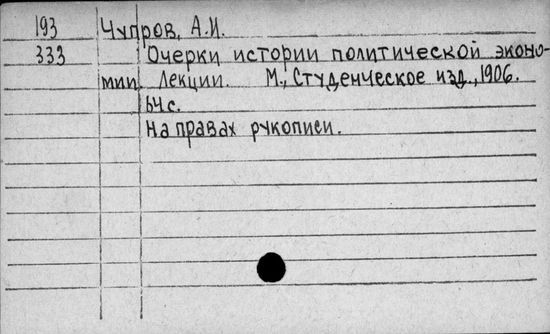 193 Чупров, А.И.
333 Очерки истории политической эконо-
мии. Лекции. М., Студенческое изд., 1906.
64 с.
На правах рукописи.